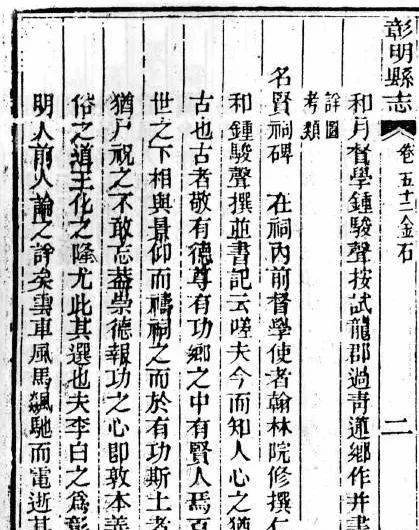 彰明縣志 卷五十二金石 二
和月督學鍾駿聲按試龍郡過青蓮鄉作并書
詳圖
考類
名賢祠碑 在祠內前督學使者翰林院修撰仁
和鍾駿聲撰並書記云嗟夫今而知人心之猶
古也古者敬有德尊有功鄉之中有賢人焉百
世之下相與景仰而禱祠之而於有功斯土者
猶尸祝之不敢忘蓋崇德報功之心即敦本善
俗之道王化之隆尤此其選也夫李白之為彰
明人前人論之詳矣雲車風馬飆馳而電逝其